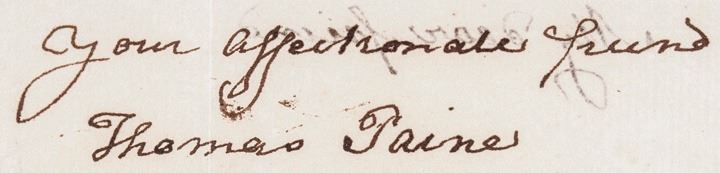 Your affectionate friend
Thomas Paine